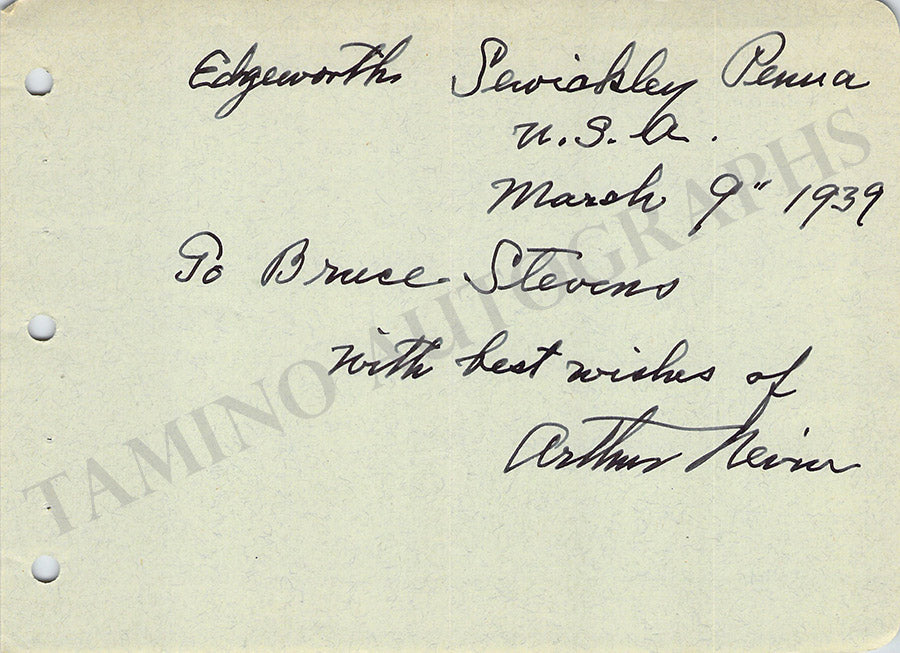 Edgeworth Sewickley Penna
U.S.A.
March 9" 1939
To Bruce Stevens
with best wishes of
Arthur Nevin
TAMINO AUTOGRAPHS